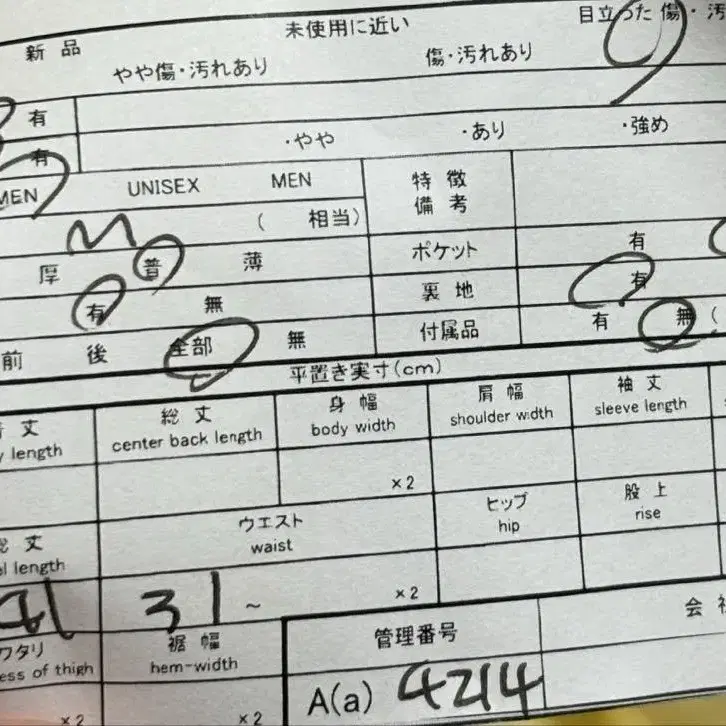 新品 未使用に近い 目立った傷・汚
やや傷・汚れあり 傷・汚れあり
有
有 ・やや ・あり ・強め
MEN UNISEX MEN 特徴備考
M ( 相当)
厚 普 薄 ポケット 有
有 無 裏地 有
前 後 全部 無 付属品 有 無 (
平置き実寸(cm)
丈 総丈 身幅 肩幅 袖丈
length center back length body width shoulder width sleeve length
×2
総丈 ウエスト ヒップ 股上
al length waist hip rise
31 ~ ×2
ワタリ 裾幅 管理番号 会社
ess of thigh hem-width
×2 ×2 A(a) 4214